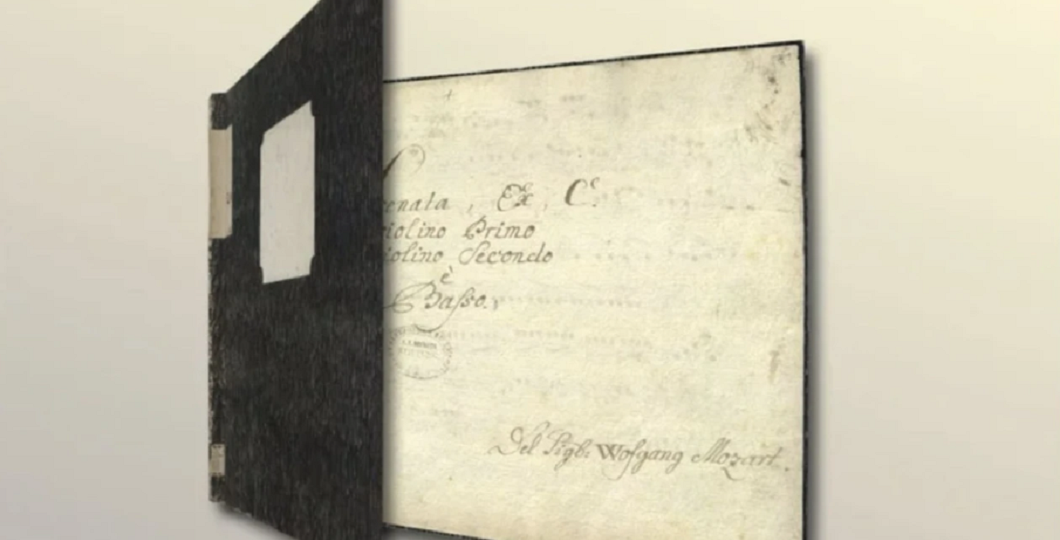 enata, Ex, C.
iolino Primo
iolino Secondo
è
Basso.
Del Sigr: Wofgang Mozart.